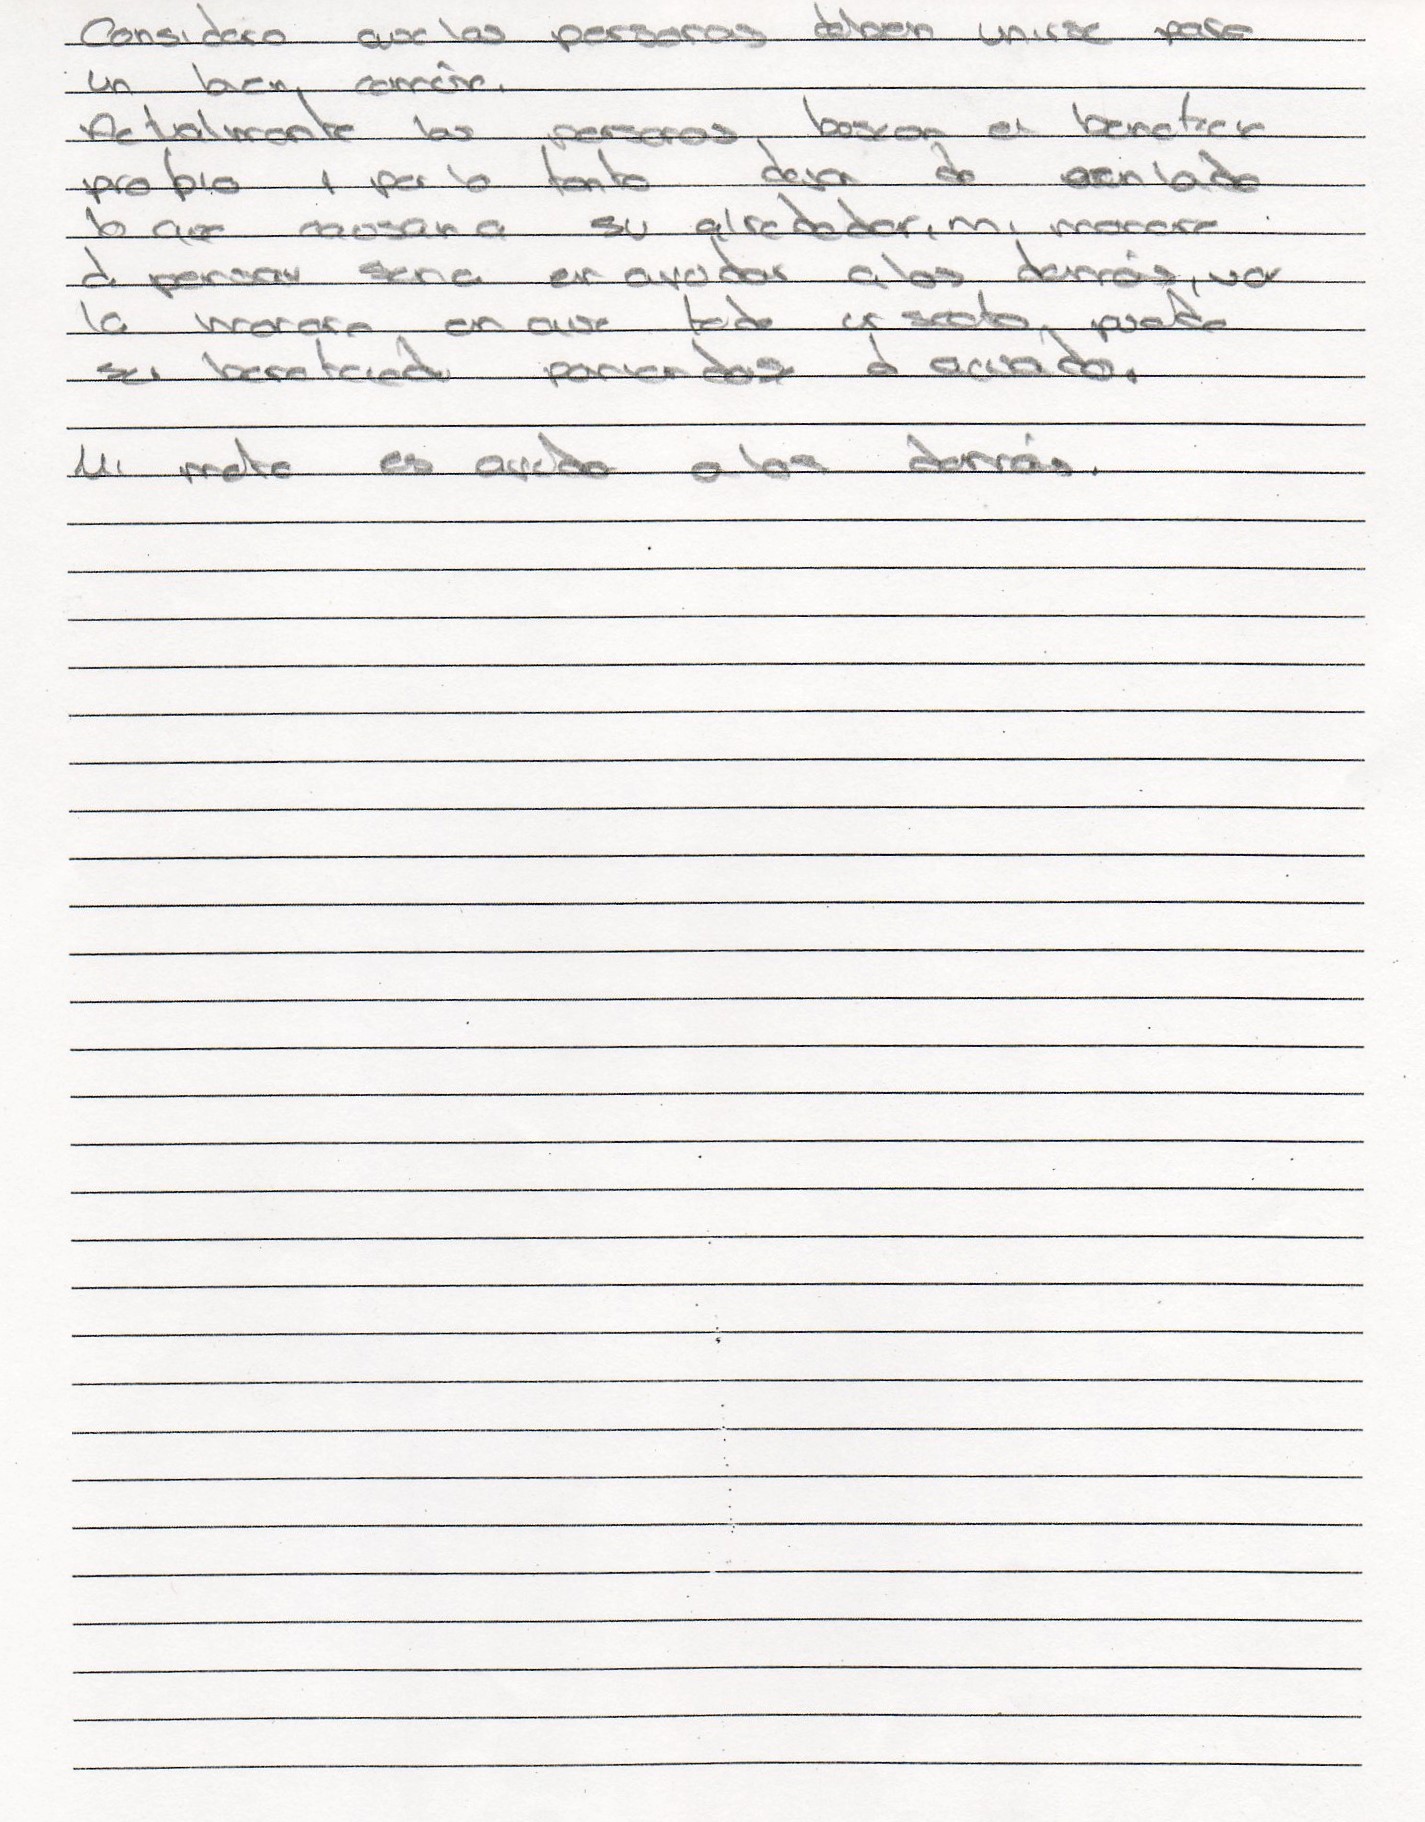 Considero que las personas deben unirse para
un bien común.
Actualmente las personas buscan el beneficio
propio y por lo tanto dejan de lado
lo que causan a su alrededor, mi manera
de pensar seria en ayudar a los demás, ver
la manera en que todo el sector pueda
ser beneficiado poniendose d acuerdo.
Mi meta es ayudar a los demás.